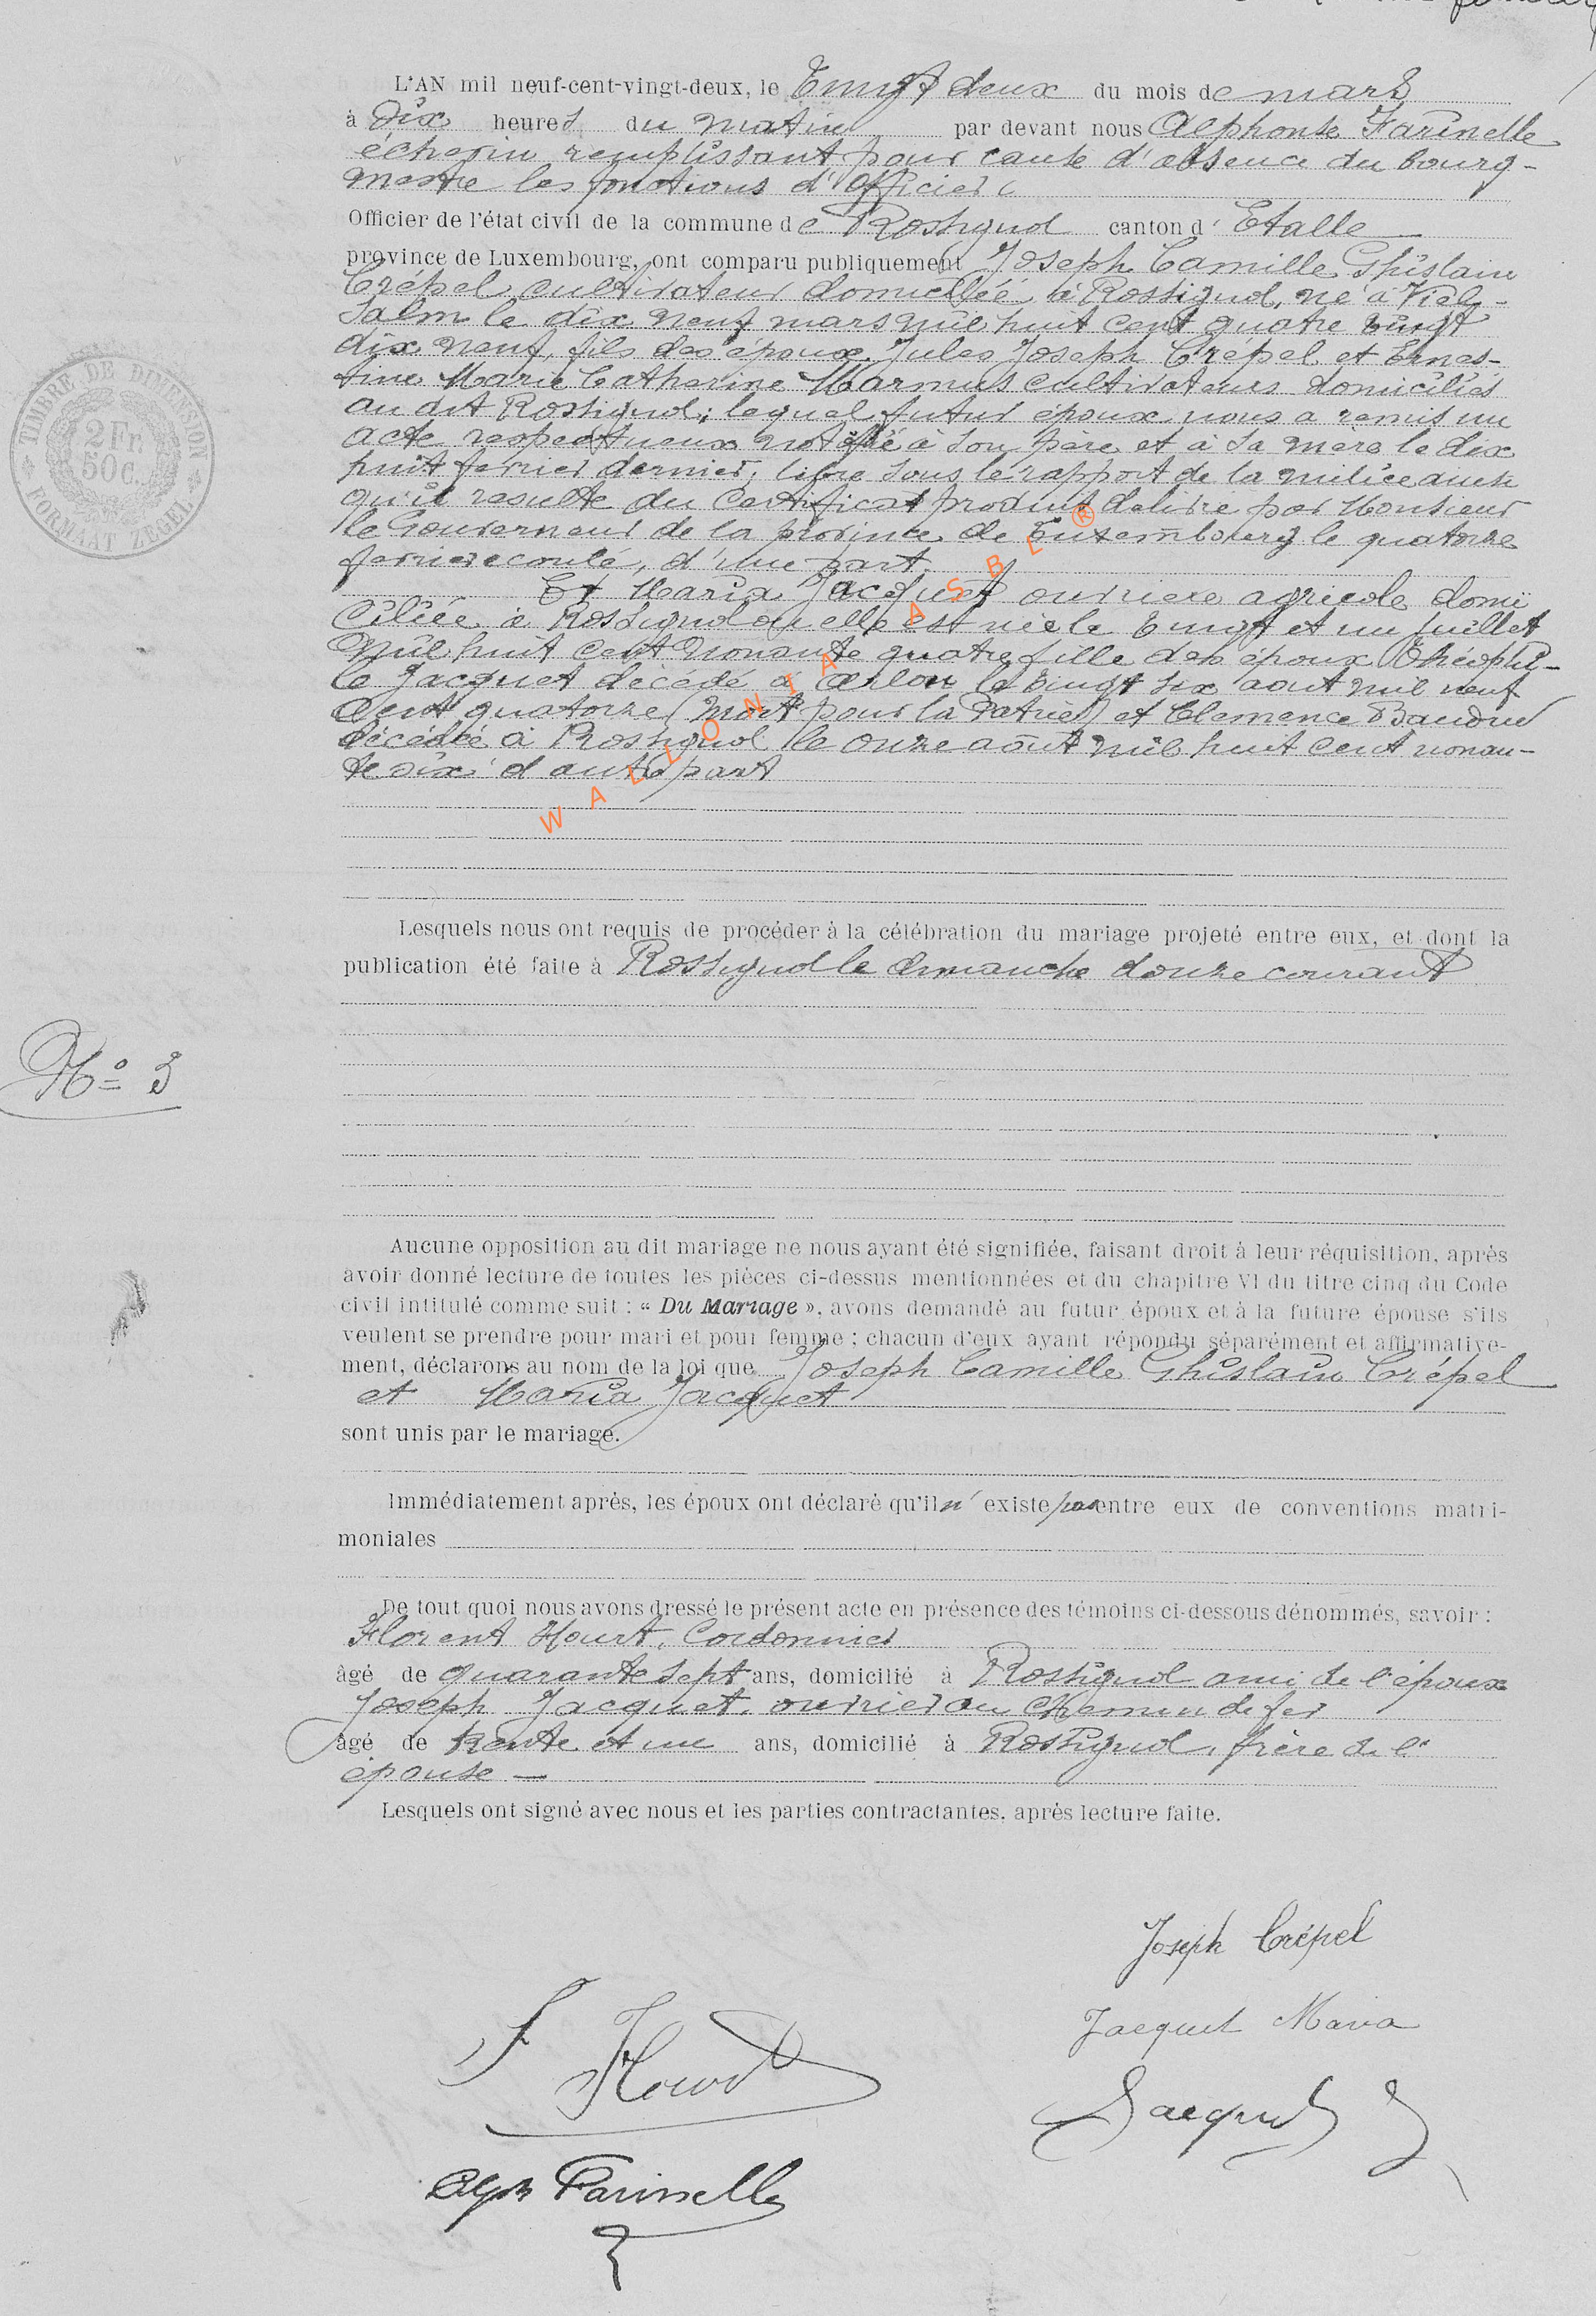 L'AN mil neuf-cent-vingt-deux, le Vingt deux du mois de mars
à Dix heures du matin par devant nous Alphonse Farinelle
échevin remplissant pour cause d'absence du bourg-
mestre les fonctions d'Officier
Officier de l'état civil de la commune de Rossignol canton d'Etalle
province de Luxembourg, ont comparu publiquement Joseph Camille Ghislain
Crépel cultivateur domicilié à Rossignol, né à Viel-
Salm le dix neuf mars mil huit cent quatre vingt
dix neuf, fils des époux Jules Joseph Crépel et Ernes-
tine Marie Catherine Marmus cultivateurs domiciliés
au dit Rossignol; lequel futur époux nous a remis un
acte respectueux notifié à son père et à sa mère le dix
huit fevrier dernier; libre sous le rapport de la milice ainsi
qu'il resulte du Certificat produit delivré par Monsieur
le Gouverneur de la province de Luxembourg le quatorze
fevrier ecoulé, d'une part.
Et Maria Jacquet ouvriere agricole domi
ciliée à Rossignol ou elle est née le vingt et un juillet
Mil huit cent nonante quatre fille des époux Théophi-
le Jacquet décédé à Arlon le vingt six aout mil neuf
Cent quatorze (mort pour la Patrie) et Clemence Baudru
décédée à Rossignol le onze août mil huit cent nonan-
te six d'autre part
WALLONIA ASBL ®
TIMBRE DE DIMENSION
2 Fr.
50 c.
FORMAAT ZEGEL
Lesquels nous ont requis de procéder à la célébration du mariage projeté entre eux, et dont la
publication été faite à Rossignol le dimanche douze courant
No 3
Aucune opposition au dit mariage ne nous ayant été signifiée, faisant droit à leur réquisition, après
avoir donné lecture de toutes les pièces ci-dessus mentionnées et du chapitre VI du titre cinq du Code
civil intitulé comme suit : « Du Mariage », avons demandé au futur époux et à la future épouse s'ils
veulent se prendre pour mari et pour femme ; chacun d'eux ayant répondu séparément et affirmative-
ment, déclarons au nom de la loi que Joseph Camille Ghislain Crépel
et Maria Jacquet
sont unis par le mariage.
Immédiatement après, les époux ont déclaré qu'il n' existe pas entre eux de conventions matri-
moniales
De tout quoi nous avons dressé le présent acte en présence des témoins ci-dessous dénommés, savoir :
Florent Hourt, Cordonnier
âgé de quarante sept ans, domicilié à Rossignol ami de l'époux
Joseph Jacquet, ouvrier au chemin de fer
âgé de trente et un ans, domicilié à Rossignol, frère de l'
épouse —
Lesquels ont signé avec nous et les parties contractantes, après lecture faite.
Joseph Crépel
Jacquet Maria
F Hourt
Jacquet J
Alph Farinelle